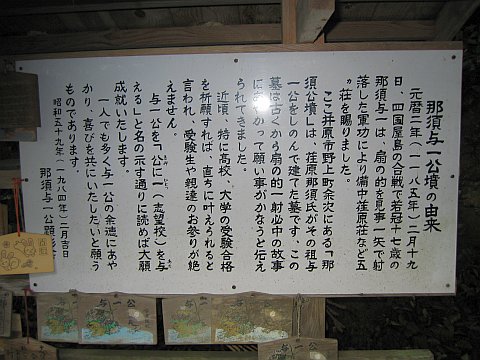 那須与一公墳の由来
元暦二年(一一八五年)二月十九
日、四国屋島の合戦で若冠十七歳の
那須与一は、扇の的を見事一矢で射
落した軍功により備中荏原荘など五
ヵ荘を賜りました。
ここ井原市野上町奈沢にある「那
須公墳」は、荏原那須氏がその祖与
一公をしのんで建てた墓です、この
墓は古くから扇の的一射必中の故事
にあやかって願い事がかなうと伝え
られてきました。
近頃、特に高校、大学の受験合格
を祈願すれば、直ちに叶えられると
言われ、受験生や親達のお参りが絶
えません。
与一公を「公に一(志望校)を与
える」と名の示す通りに読めば大願
成就いたします。
一人でも多く与一公の余徳にあや
かり、喜びを共にいたしたいと願う
ものであります。
昭和五十九年(一九八四年)二月吉日
那須与一公顕彰会
与一公
与一公
与一公